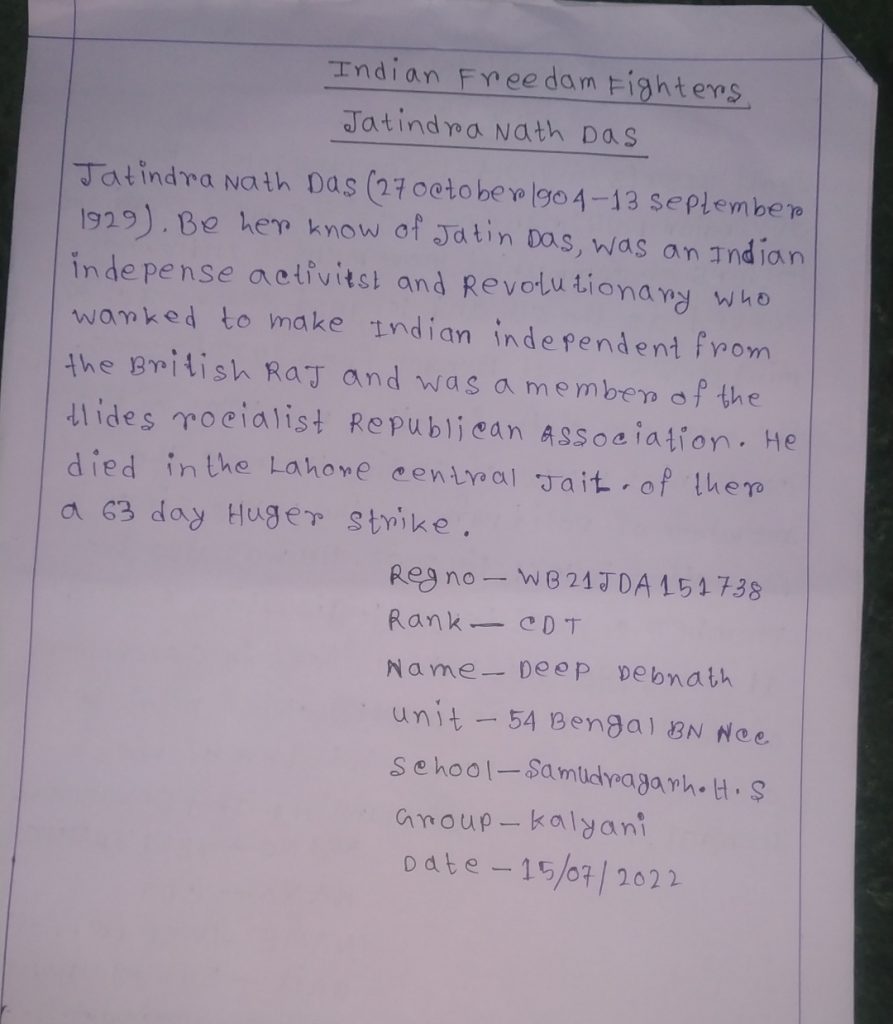 Indian Freedam Fighters
Jatindra Nath Das
Jatindra Nath Das (27 october 1904-13 september
1929). Be her know of Jatin Das, was an Indian
indepense activitst and Revolutionary who
warked to make Indian independent from
the British Raj and was a member of the
Hides rocialist Republican Association. He
died in the Lahore central Jait. of ther
a 63 day Huger strike.
Regno - WB21JDA151738
Rank - CDT
Name - Deep Debnath
unit - 54 Bengal BN Ncc
school - Samudragarh. H. S
Group - Kalyani
Date - 15/07/2022